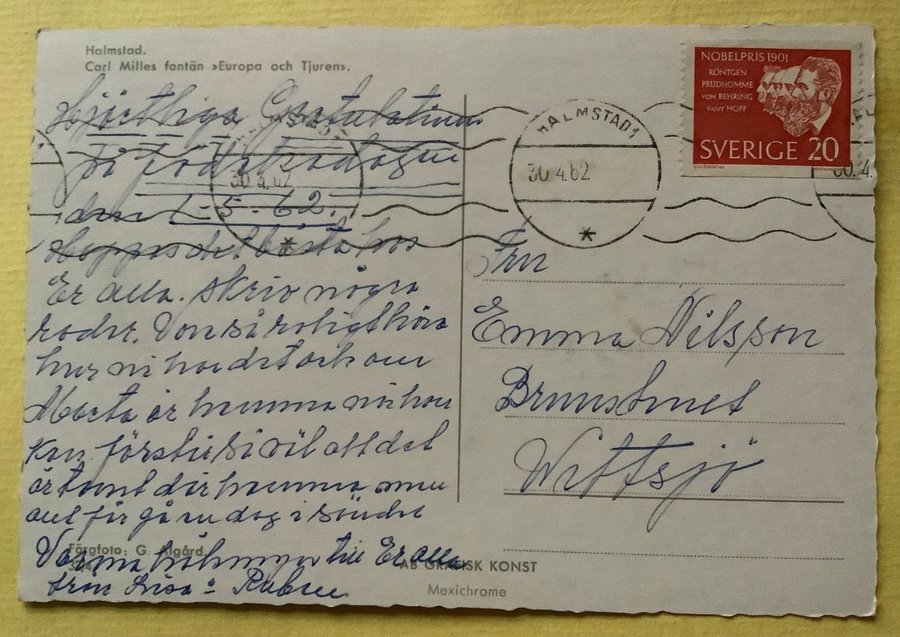 Halmstad.
Carl Milles fontän »Europa och Tjuren».
Hjärtliga Gratulationer
på födelsedagen
den 1-5-62.
Hoppas det bästa hos
Er alla. Skriv några
rader. Vore så roligt höra
hur ni har det och om
Marta är hemma när hon
kan. förstår så väl att det
är tomt där hemma men
allt får gå en dag i sönder
Varma hälsningar till Er alla
från Lisa o Ruben
Färgfoto: G. Algård.
AB GRAFISK KONST
Mexichrome
NOBELPRIS 1901
RÖNTGEN
PRUDHOMME
VON BEHRING
VAN'T HOFF
SVERIGE 20
HALMSTAD 1
30.4.62
30.4.62
Fru
Emma Nilsson
Wittsjö